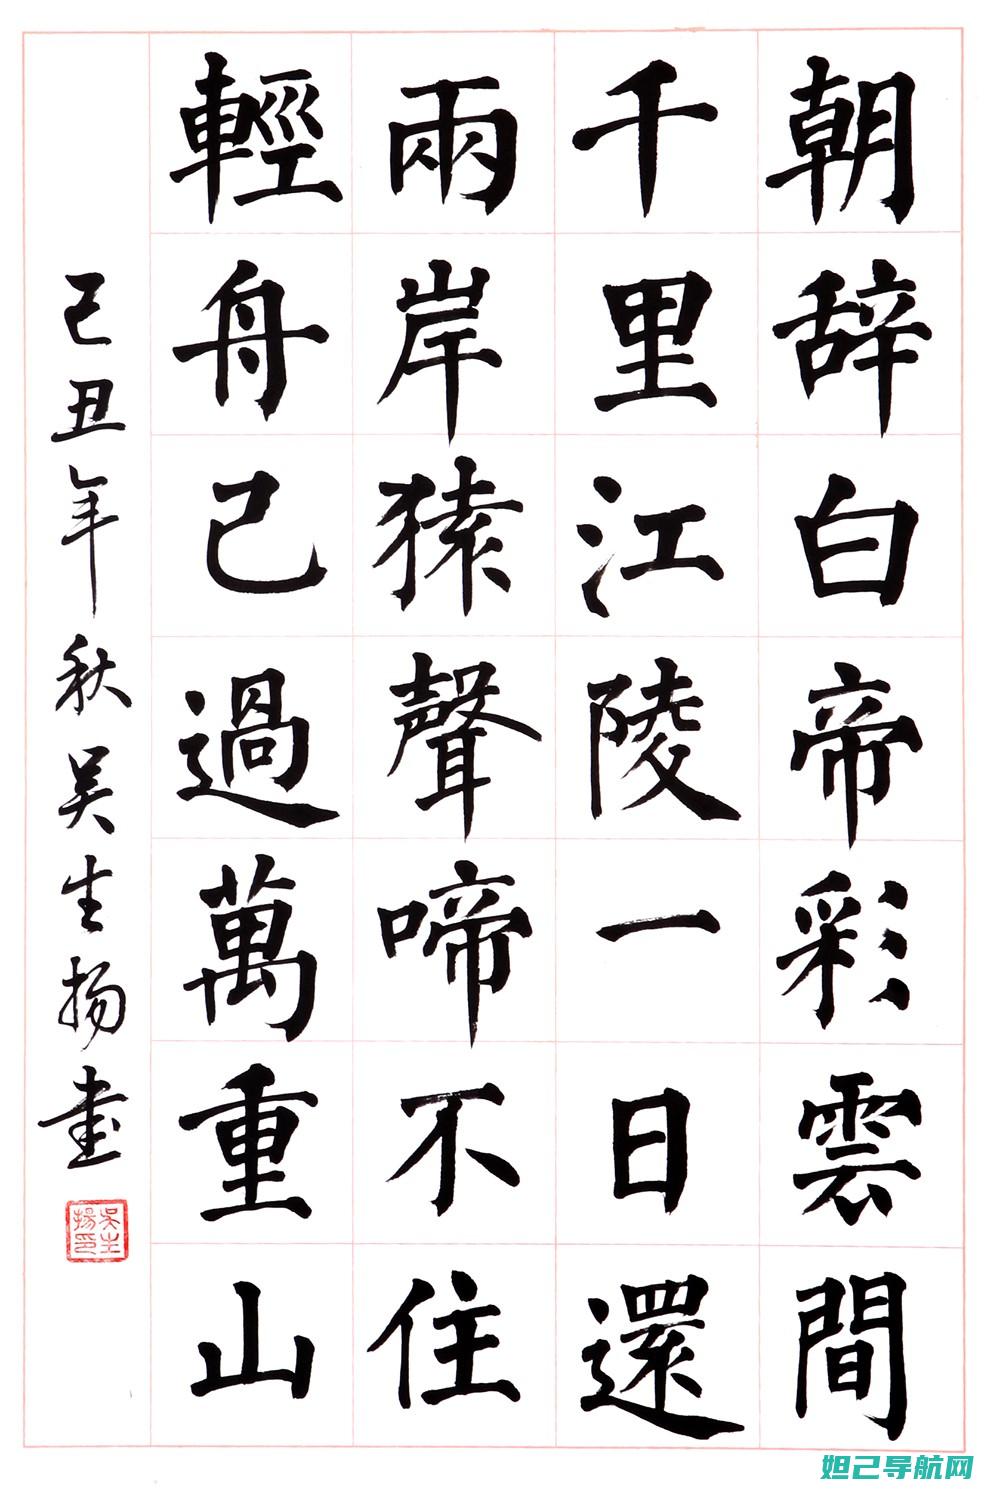 朝辞白帝彩雲間
千里江陵一日還
兩岸猿聲啼不住
輕舟已過萬重山
己丑年秋吴生扬书
吳生揚印
妲己导航网